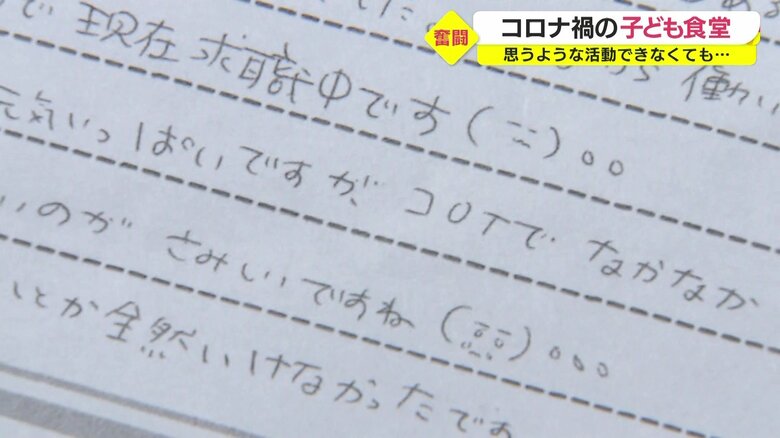 奮闘
コロナ禍の子ども食堂
思うような活動できなくても…
で現在求職中です(ニニ)。。
元気いっぱいですが、コロナでなかなか
いのがさみしいですね(;;)。。。
とか全然いけなかったです